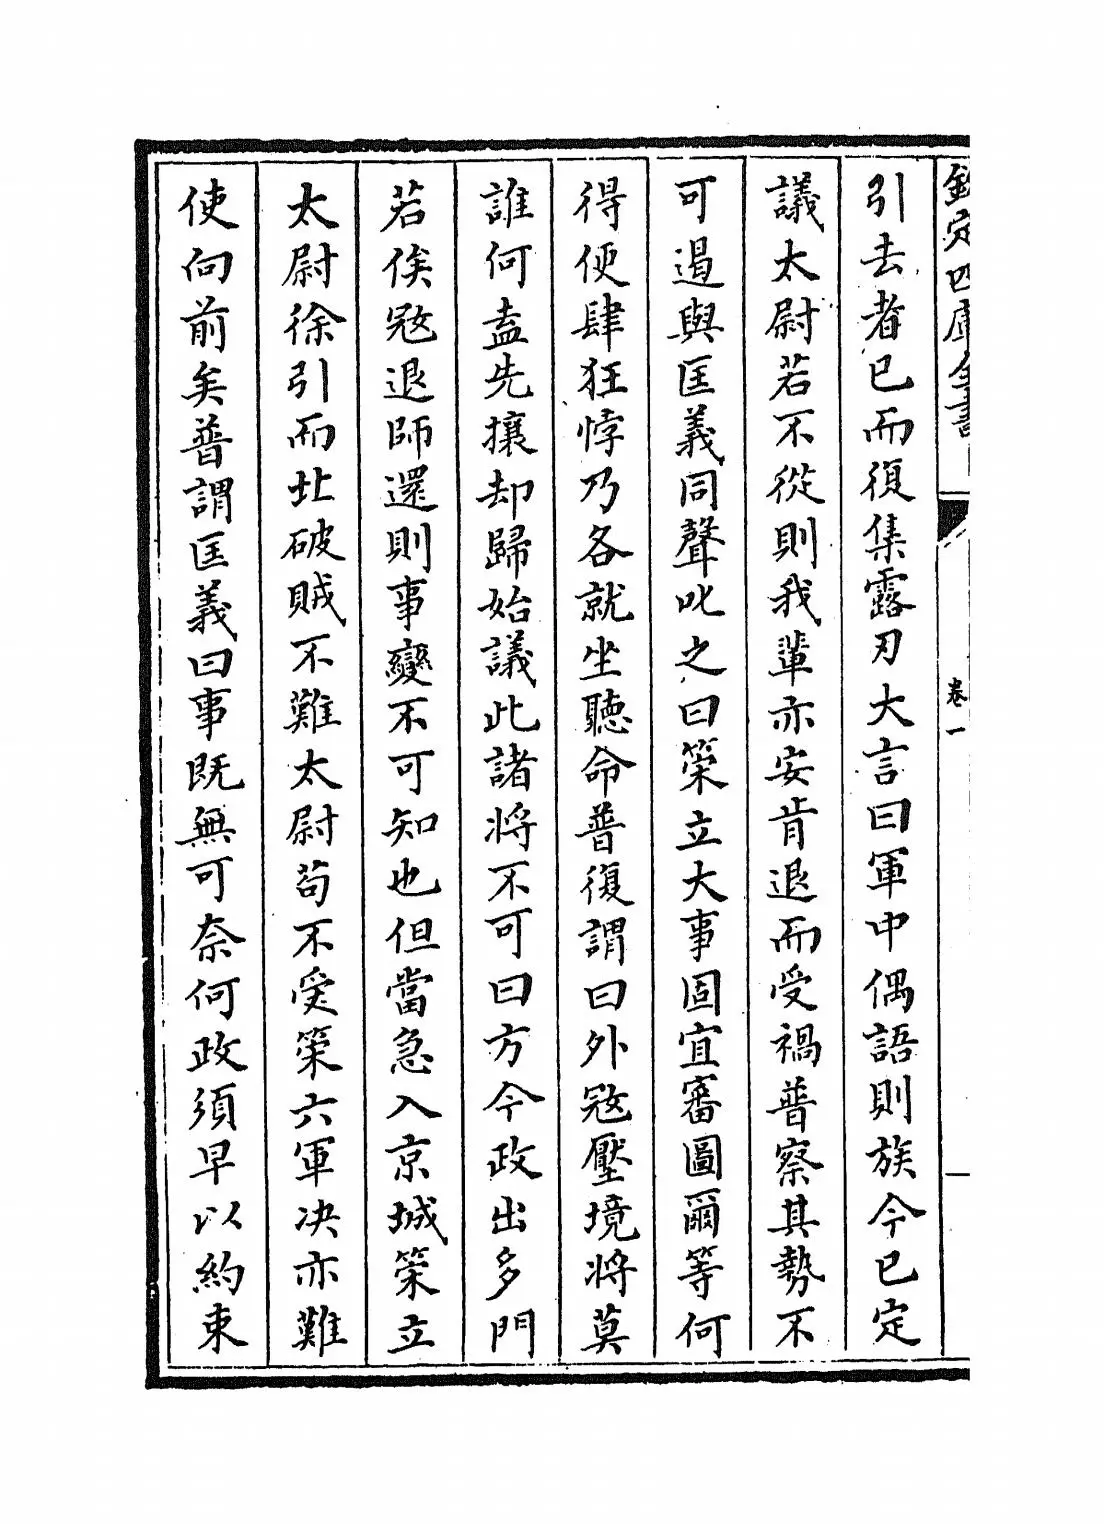 欽定四庫全書
卷一
引去者已而復集露刃大言曰軍中偶語則族今已定
議太尉若不從則我輩亦安肯退而受禍普察其勢不
可遏與匡義同聲叱之曰策立大事固宜審圖爾等何
得便肆狂悖乃各就坐聽命普復謂曰外寇壓境將莫
誰何盍先攘却歸始議此諸將不可曰方今政出多門
若俟寇退師還則事變不可知也但當急入京城策立
太尉徐引而北破賊不難太尉苟不受策六軍决亦難
使向前矣普謂匡義曰事既無可奈何政須早以約束